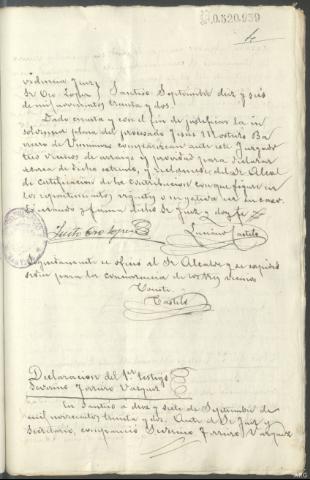 0.320.939
videncia Juez
Sr Oro Lopez Santiso Septiembre diez y seis
de mil novecientos treinta y dos.
Dado cuenta y con el fin de justificar la in
solvencia plena del procesado Jesus Mosteiro Ba
rrero de Visuña comparezcan ante este Juzgado
tres vecinos de arraigo y providad para declarar
acerca de dicho extremo, y reclamese del Sr Alcal
de certificacion de la contribucion con que figure en
los repartimientos vigentes o negativa en su caso.
Lo mando y firma dicho Sr Juez y doy fe
Justo Oro Lopez Luciano Castelo
Seguidamente se oficio al Sr Alcalde y se expidio
orden para la concurrencia de los tres vecinos
Castelo
Declaracion del 1er testigo
Severino Ferreiro Vazquez
En Santiso a diez y siete de Septiembre de
mil novecientos treinta y dos. Ante el Sr Juez y
Secretario, comparecio Severino Ferreiro Vazquez
ARG